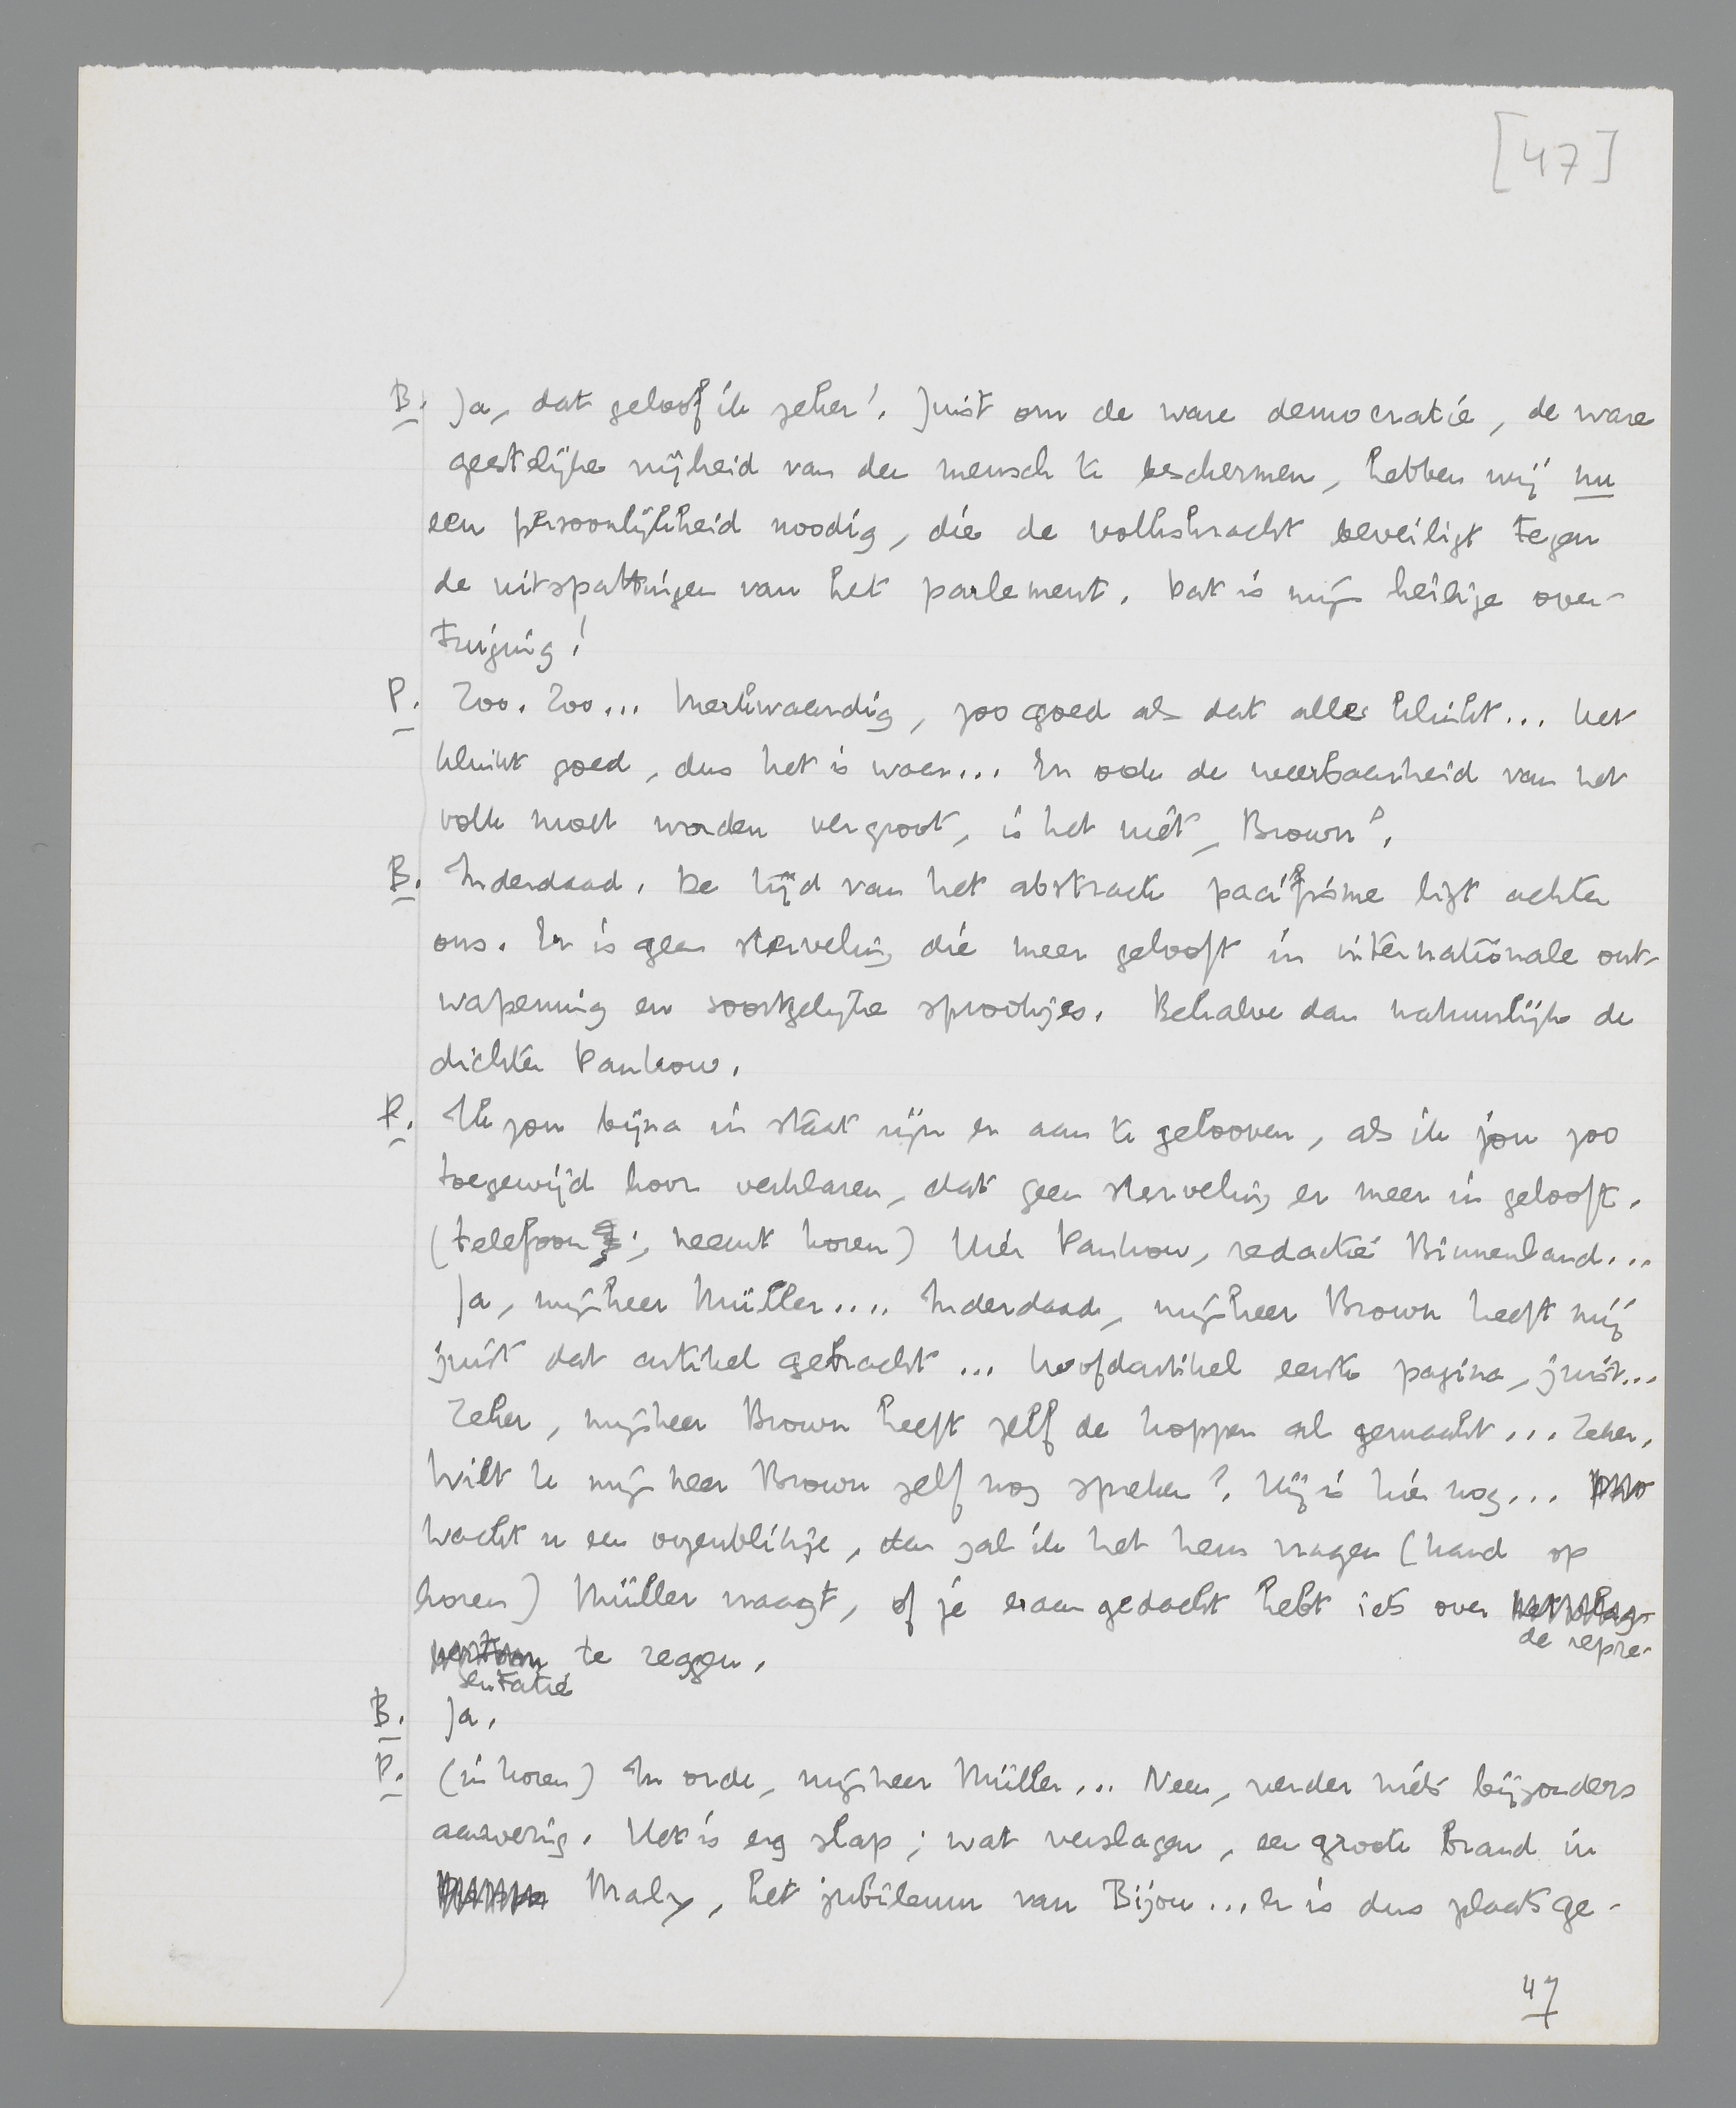 [47]
B. Ja, dat geloof ik zeker! Juist om de ware democratie, de ware
geestelijke vrijheid van den mensch te beschermen, hebben wij nu
een persoonlijkheid noodig, die de volkskracht beveiligt tegen
de uitspattingen van het parlement. Dat is mijn heilige over-
tuiging!
P. Zoo. Zoo... Merkwaardig, zoo goed als dat alles klinkt... Het
klinkt goed, dus het is waar... En ook de weerbaarheid van het
volk moet worden vergroot, is het niet, Brown?
B. Inderdaad. De tijd van het abstracte pacifisme ligt achter
ons. Er is geen sterveling die meer gelooft in internationale ont-
wapening en soortgelijke sprookjes. Behalve dan natuurlijk de
dichter Pankow.
P. Ik zou bijna in staat zijn er aan te gelooven, als ik jou zoo
toegewijd hoor verklaren, dat geen sterveling er meer in gelooft.
(telefoon; neemt horen) Hier Pankow, redactie Binnenland...
Ja, mijnheer Müller.... Inderdaad, mijnheer Brown heeft mij
juist dat artikel gebracht... hoofdartikel eerste pagina, juist...
Zeker, mijnheer Brown heeft zelf de koppen al gemaakt... Zeker.
Wilt U mijnheer Brown zelf nog spreken? Hij is hier nog...
wacht u een oogenblikje, dan zal ik het hem vragen (hand op
horen) Müller vraagt, of je eraan gedacht hebt iets over
de repre-
sentatie te zeggen.
B. Ja.
P. (in horen) In orde, mijnheer Müller... Neen, verder niets bijzonders
aanwezig. Het is erg slap; wat verslagen, een groote brand in
Maly, het jubileum van Bijou... er is dus plaats ge-
47